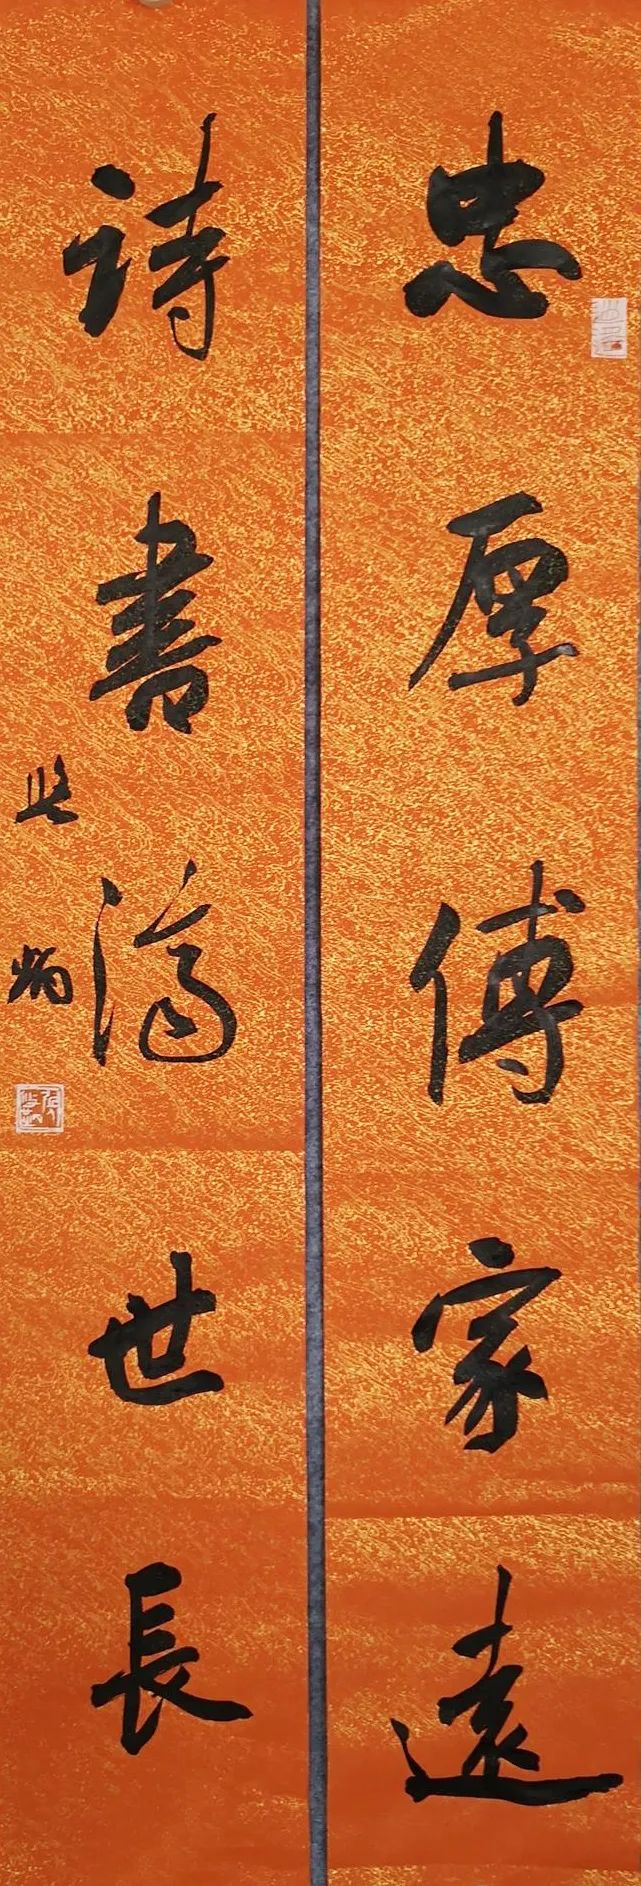 忠厚傳家遠
詩書濟世長